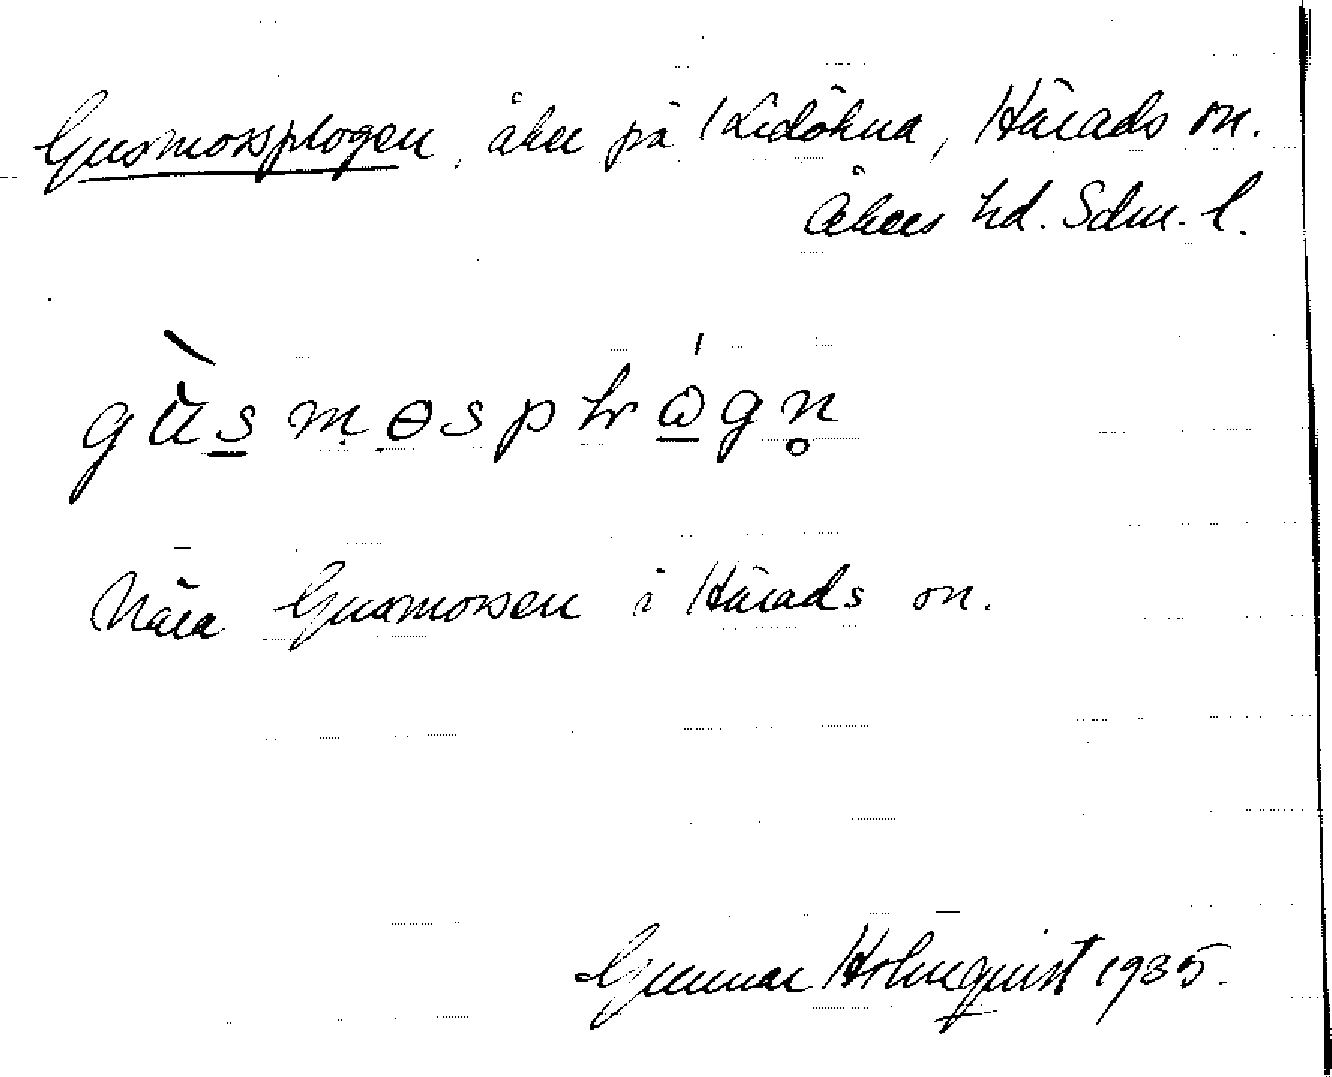 Gusmossplogen, åker på Lidökna, Härads sn.
Åkers hd. Sdm. l.
gùsmɵsplɷ́gn̥
Nära Gusmossen i Härads sn.
Gunnar Holmquist 1935.